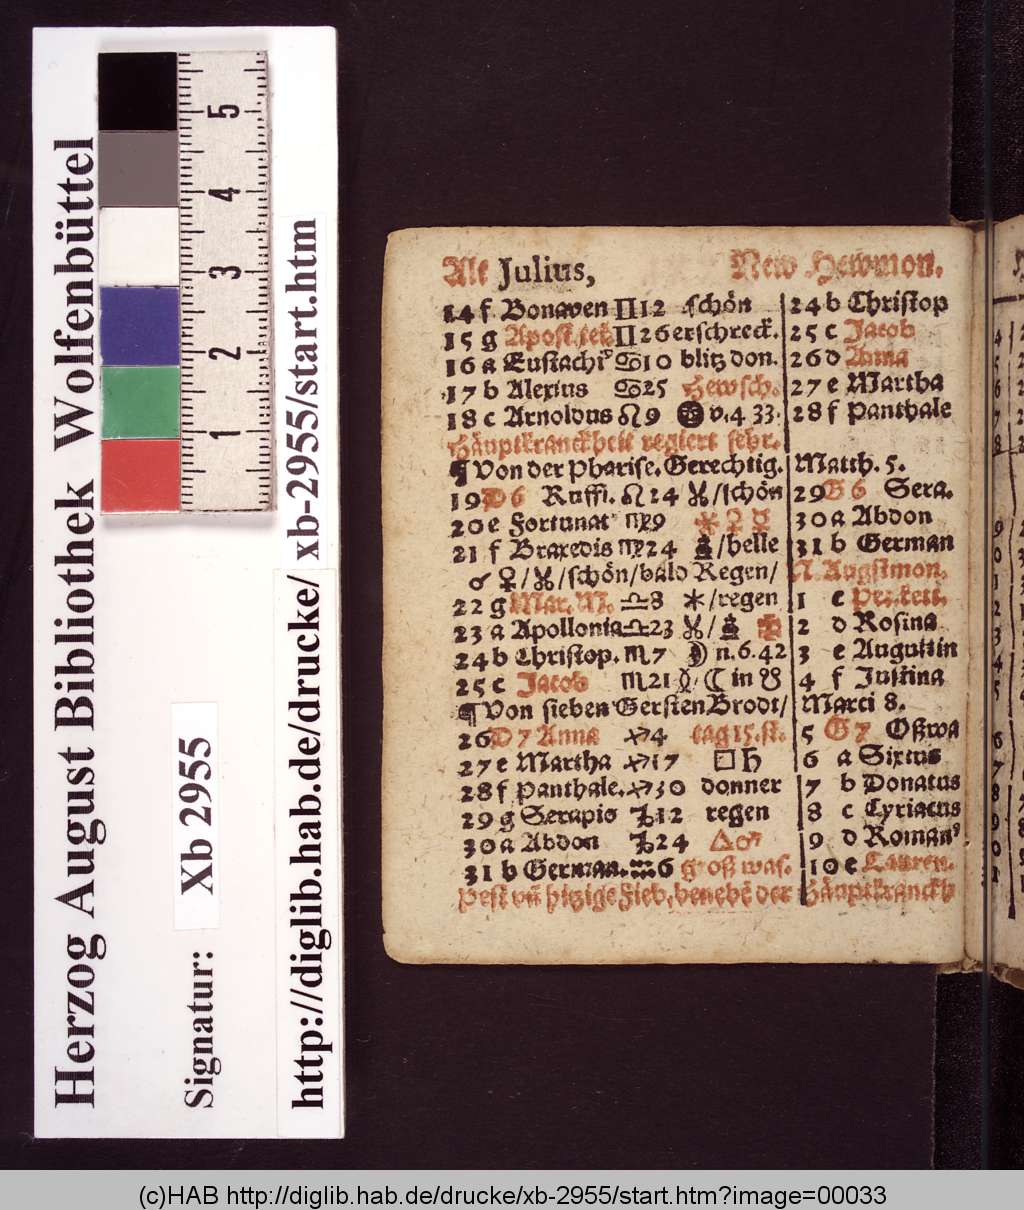 Herzog August Bibliothek Wolfenbüttel
Signatur: Xb 2955
http://diglib.hab.de/drucke/xb-2955/start.htm
5
4
3
2
1
Alt Julius, New Hewmon.
14 f Bonaven ♊ 12 schön 24 b Christop
15 g Apost. teil. ♊ 26 erschreck. 25 c Jacob
16 a Eustachiꝰ ♋ 10 blitz don. 26 d Anna
17 b Alexius ♋ 25 Hewsch. 27 e Martha
18 c Arnoldus ♌ 9 v. 4 33. 28 f Panthale
Häuptkranckheit regiert sehr.
¶ Von der Pharise. Gerechtig. Matth. 5.
19 D 6 Ruffi. ♌ 24 /schön 29 G 6 Sera.
20 e Fortunat ♍ 9 ⚹ ♀ ☿ 30 a Abdon
21 f Braxedis ♍ 24 /helle 31 b German
☌ ♀ / /schön/bald Regen/ N. Augstmon.
22 g Mar. M. ♎ 8 ⚹/regen 1 c Pet. kett.
23 a Apollonia ♎ 23 2 d Rosina
24 b Christop. ♏ 7 ☽ n. 6. 42 3 e Augustin
25 c Jacob ♏ 21 ☾ in ☋ 4 f Justina
¶ Von sieben Gersten Brodt/ Marci 8.
26 D 7 Anna ♐ 4 tag 15. st. 5 G 7 Oßwa
27 e Martha ♐ 17 □ ♄ 6 a Sixtus
28 f Panthale. ♐ 30 donner 7 b Donatus
29 g Serapio ♑ 12 regen 8 c Cyriacus
30 a Abdon ♑ 24 △ ♂ 9 d Romanꝰ
31 b German. ♒ 6 groß was. 10 e Lauren.
Pest uñ hitzige Fieb. benebẽ der Häuptkranckh
(c)HAB http://diglib.hab.de/drucke/xb-2955/start.htm?image=00033